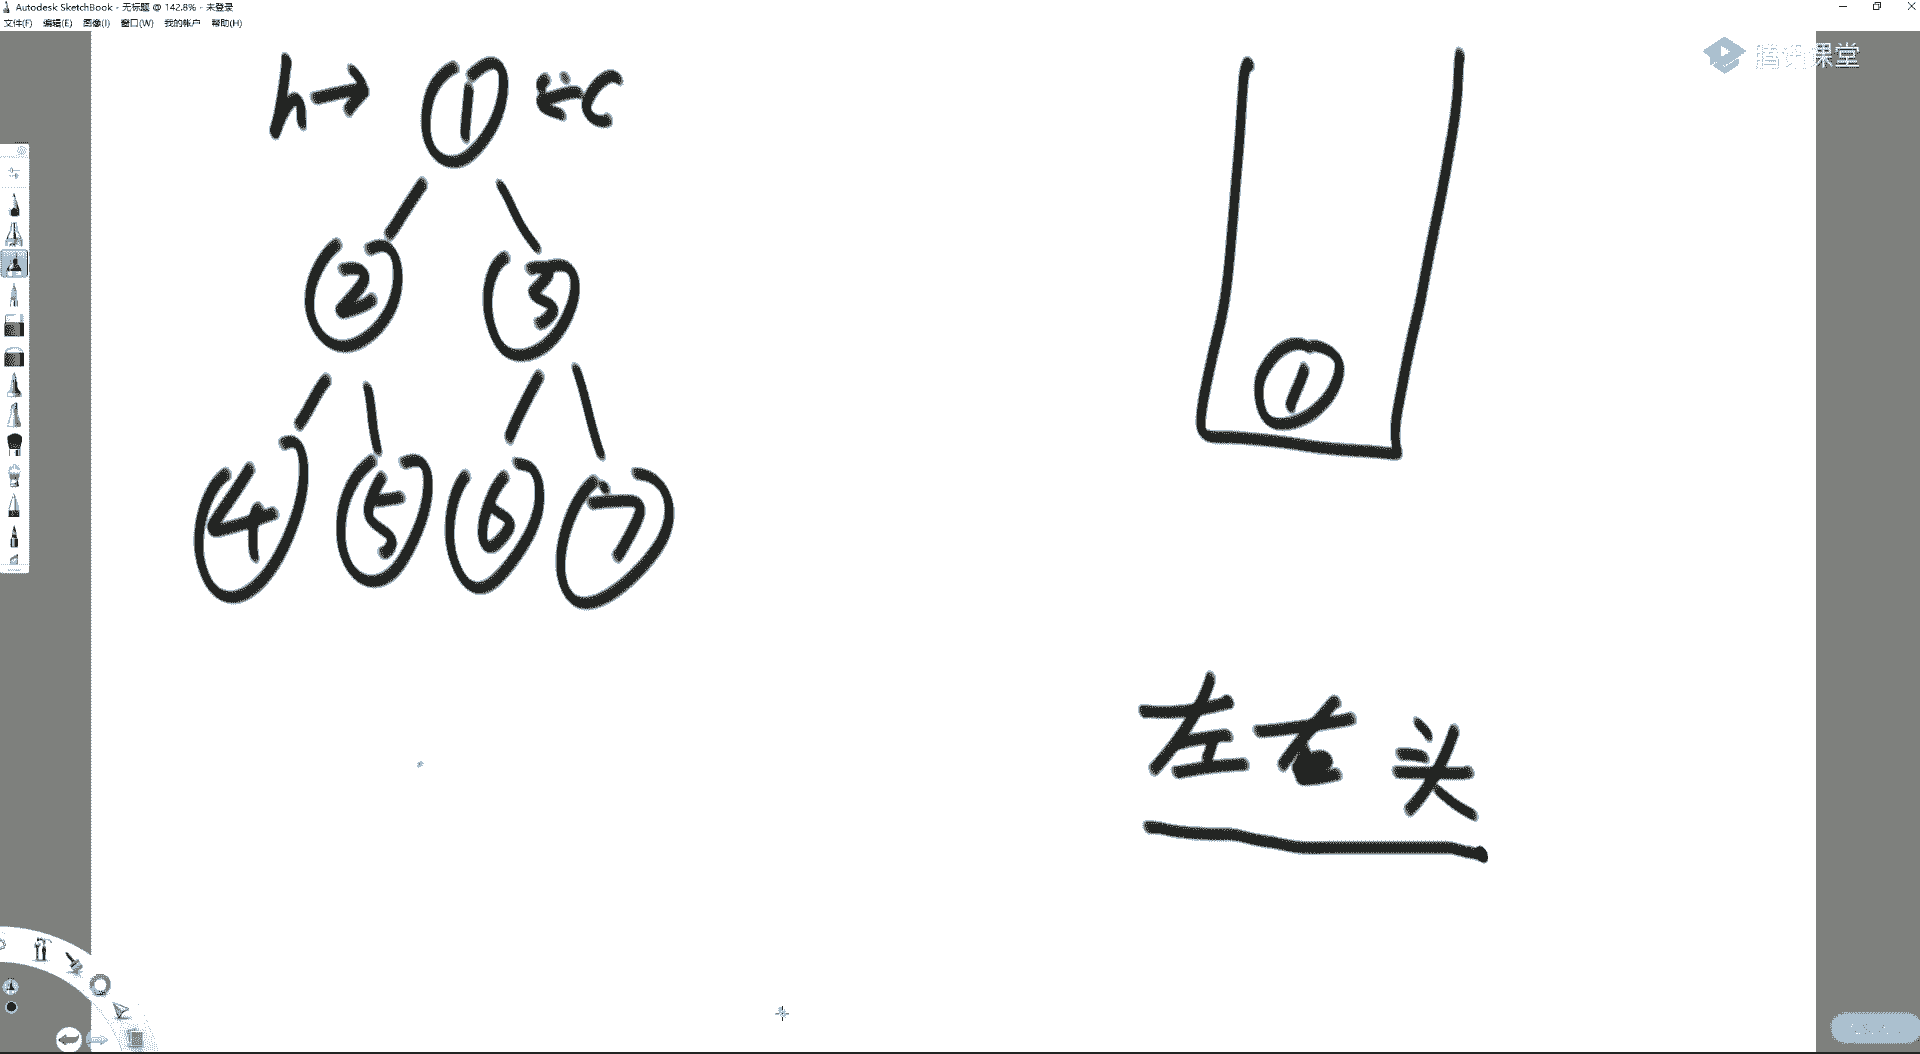 Autodesk SketchBook - 无标题 @ 142.8% - 未登录
文件(F) 编辑(E) 图像(I) 窗口(W) 我的帐户 帮助(H)
腾讯课堂
h→ 1 ←c
2 3
4 5 6 7
1
左右头